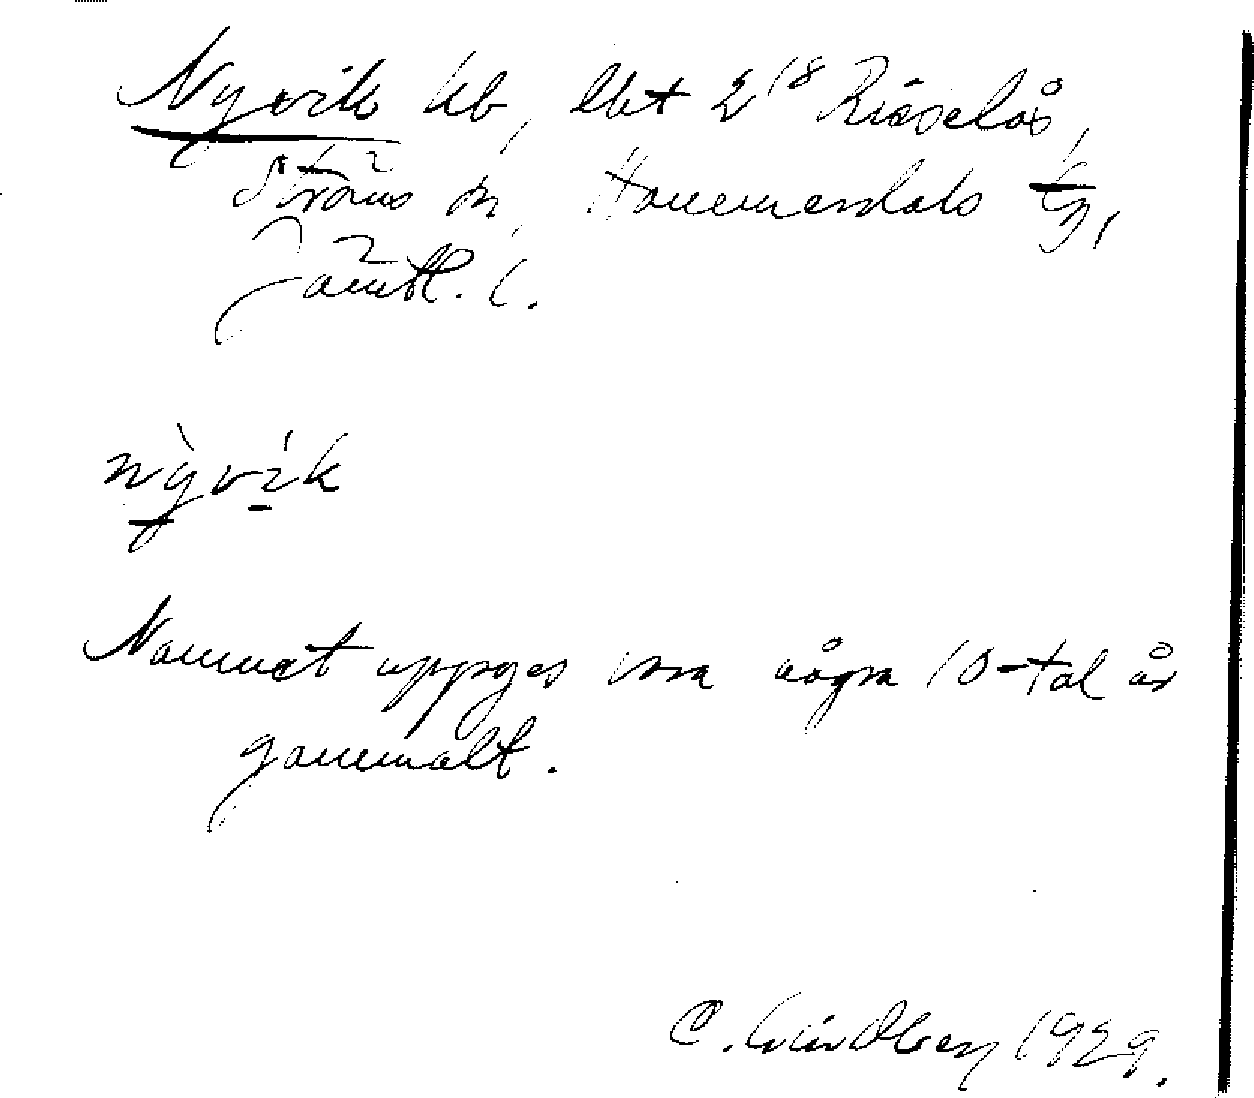 Nyvik lb, lht 2¹⁸ Risselås,
Ströms sn, Hammerdals tg,
Jämtl. l.
nỳvík
Namnet uppges vara några 10-tal år
gammalt.
C. Lindberg 1929.